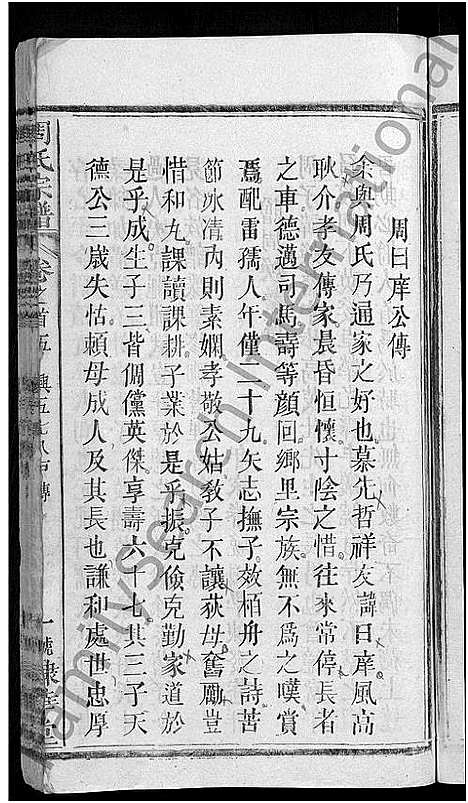 周曰庠公傳
余與周氏乃通家之好也慕先哲祥友諱曰庠風高
耿介孝友傳家晨昏恒懷寸陰之惜往來常停長者
之車德邁司馬壽等顏回鄉里宗族無不爲之嘆賞
爲配雷孺人年僅二十九矢志撫子效栢舟之詩苦
節氷清內則素嫻孝敬公姑敎子不讓荻母舊勵豈
惜和丸課讀課耕子業於是乎振克儉克勤家道於
是乎成生子三皆倜儻英傑享壽六十七其三子天
德公三歲失怙頼母成人及其長也謙和處世忠厚
周氏宗譜
卷之首五
傳
FamilySearch International